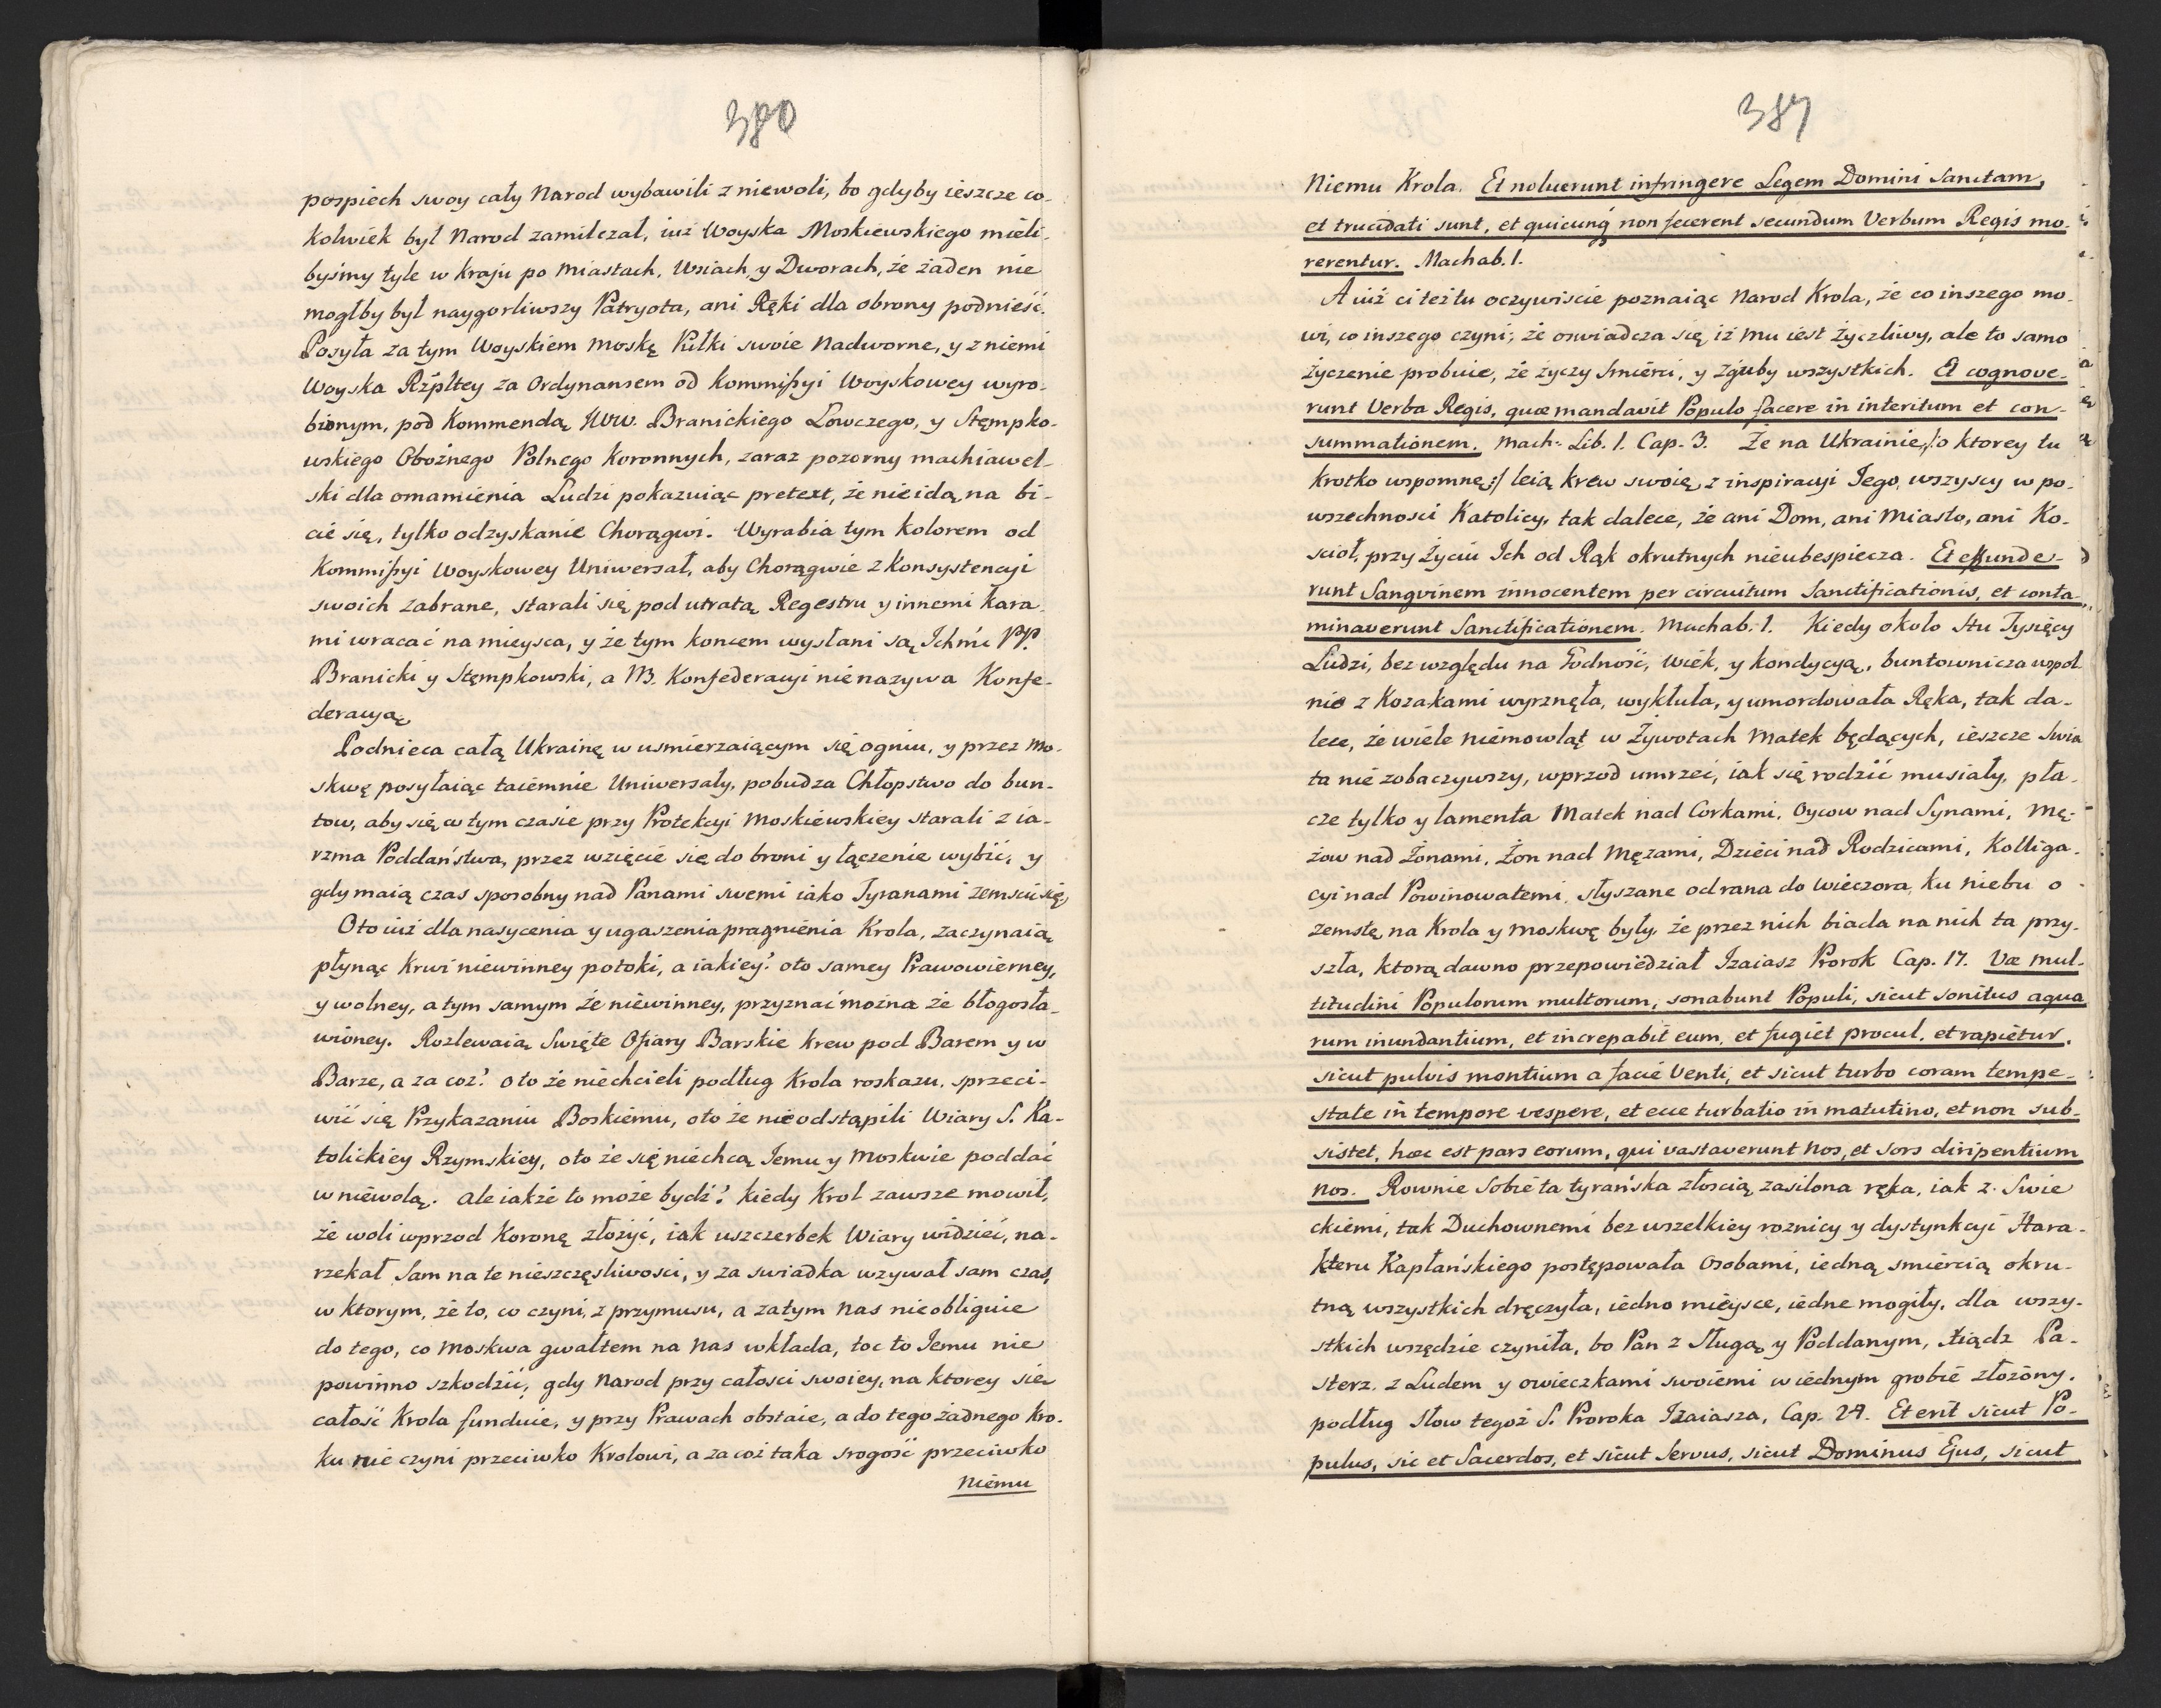 380
pospiech swoy cały Narod wybawili z niewoli, bo gdyby ieszcze co-
kolwiek był Narod zamilczał, iuż Woyska Moskiewskiego mieli-
byśmy tyle w kraju po Miastach, Wsiach, y Dworach, że żaden nie
mogłby był naygorliwszy Patryota, ani Ręki dla obrony podnieść.
Posyła za tym Woyskiem Moskę Pułki swoie Nadworne, y z niemi
Woyska Rzpltey za Ordynansem od Kommißyi Woyskowey wyro-
bionym, pod Kommendą WW. Branickiego Łowczego, y Stempko-
wskiego Oboźnego Polnego Koronnych, zaraz pozorny machiawel-
ski dla omamienia Ludzi pokazuiąc pretext, że nie idą na bi-
cie się, tylko odzyskanie Chorągwi. Wyrabia tym kolorem od
Kommißyi Woyskowey Uniwersał, aby Chorągwie z Konsystencyi
swoich zabrane, starali się pod utratą Regestru y innemi kara-
mi wracać na mieysca, y że tym koncem wysłani są Ichmć PP.
Branicki y Stempkowski, a W. Konfederacyi nie nazywa Konfe-
deracyą.
Podnieca całą Ukrainę w usmierzaiącym się ogniu, y przez Mo-
skwę posyłaiąc taiemnie Uniwersały, pobudza Chłopstwo do bun-
tow, aby się w tym czasie przy Protekcyi Moskiewskiey starali z ia-
rzma Poddaństwa, przez wzięcie się do broni y łączenie wybić, y
gdy maią czas sposobny nad Panami swemi iako Tyranami zemscić się,
Oto iuż dla nasycenia y ugaszenia pragnienia Krola, zaczynaią
płynąc krwi niewinney potoki, a iakiey? oto samey Prawowierney,
y wolney, a tym samym że niewinney, przyznać można że błogosła-
wioney. Rozlewaią Swięte Ofiary Barskie krew pod Barem y w
Barze, a za coż? oto że niechcieli podług Krola roskazu, sprzeci-
wić się Przykazaniu Boskiemu, oto że nie odstąpili Wiary S. Ka-
tolickiey Rzymskiey, oto że się niechcą Iemu y Moskwie poddać
w niewolą. Ale iakże to może bydź? kiedy Krol zawsze mowił,
że woli wprzod Koronę złożyć, iak uszczerbek Wiary widzieć, na-
rzekał sam na te nieszczęsliwosci, y za swiadka wzywał sam czas,
w ktorym, że to, co czyni, z przymusu, a zatym nas nie obliguie
do tego, co Moskwa gwałtem na nas wkłada, toc to Iemu nie
powinno szkodzić, gdy Narod przy całosci swoiey, na ktorey się
całość Krola funduie, y przy Prawach obstaie, a do tego żadnego kro-
ku nie czyni przeciwko Krolowi, a za coż taka srogość przeciwko
Niemu
381
Niemu Krola. Et noluerunt infringere Legem Domini Sanctam,
et trucidati sunt, et quicunq́ non fecerent secundum Verbum Regis mo-
rerentur. Machab. 1.
A iuż ci też tu oczywiscie poznaiąc Narod Krola, że co inszego mo-
wi, co inszego czyni; że oswiadcza się, iż mu iest życzliwy, ale to samo
życzenie probuie, że życzy smierci, y zguby wszystkich. Et cognove-
runt Verba Regis, quæ mandavit Populo facere in interitum et con-
summationem. Mach: Lib. 1. Cap. 3. Że na Ukrainie /:o ktorey tu
krotko wspomnę:/ leią krew swoię z inspiracyi Iego, wszyscy w po-
wszechnosci Katolicy, tak dalece, że ani Dom, ani Miasto, ani Ko-
scioł, przy życiu Ich od Rąk okrutnych nieubespiecza. Et effunde-
runt Sangvinem innocentem per circuitum Sanctificationis, et conta-
minaverunt Sanctificationem. Machab. 1. Kiedy około stu Tysięcy
Ludzi, bez względu na Godność, wiek, y kondycyą, buntownicza wspol-
nie z Kozakami wyrznęła, wykłuła, y umordowała Ręka, tak da-
lece, że wiele niemowląt w żywotach Matek będących, ieszcze swia
ta nie zobaczywszy, wprzod umrzeć, iak się rodzić musiały, pła-
cze tylko y lamenta Matek nad Corkami, Oycow nad Synami, Mę-
żow nad Żonami, Żon nad Mężami, Dzieci nad Rodzicami, Kolliga-
cyi nad Powinowatemi, słyszane od rana do wieczora, ku niebu o
zemstę na Krola y Moskwę były, że przez nich biada na nich ta przy-
szła, ktorą dawno przepowiedział Izaiasz Prorok Cap. 17. Væ mul-
titudini Populorum multorum, sonabunt Populi, sicut sonitus aqua
rum inundantium, et increpabit eum, et fugiet procul, et rapietur,
sicut pulvis montium a facie Venti, et sicut turbo coram tempe-
state in tempore vespere, et ecce turbatio in matutino, et non sub-
sistet, hæc est pars eorum, qui vastaverunt nos, et sors diripientium
nos. Rownie sobie ta tyrańska złoscią zasilona ręka, iak z Swie
ckiemi, tak Duchownemi bez wszelkiey roznicy y dystynkcyi Hara-
kteru Kapłańskiego postępowała Osobami, iedną smiercią okru-
tną wszystkich dręczyła, iedno mieysce, iedne mogiły, dla wszy-
stkich wszędzie czyniła, bo Pan z Sługą y Poddanym, Xiądz Pa-
sterz z Ludem y owieczkami swoiemi w iednym grobie złożony,
podług słow tegoż S. Proroka Izaiasza, Cap. 24. Et erit sicut Po-
pulus, sic et Sacerdos, et sicut Servus, sicut Dominus Ejus, sicut